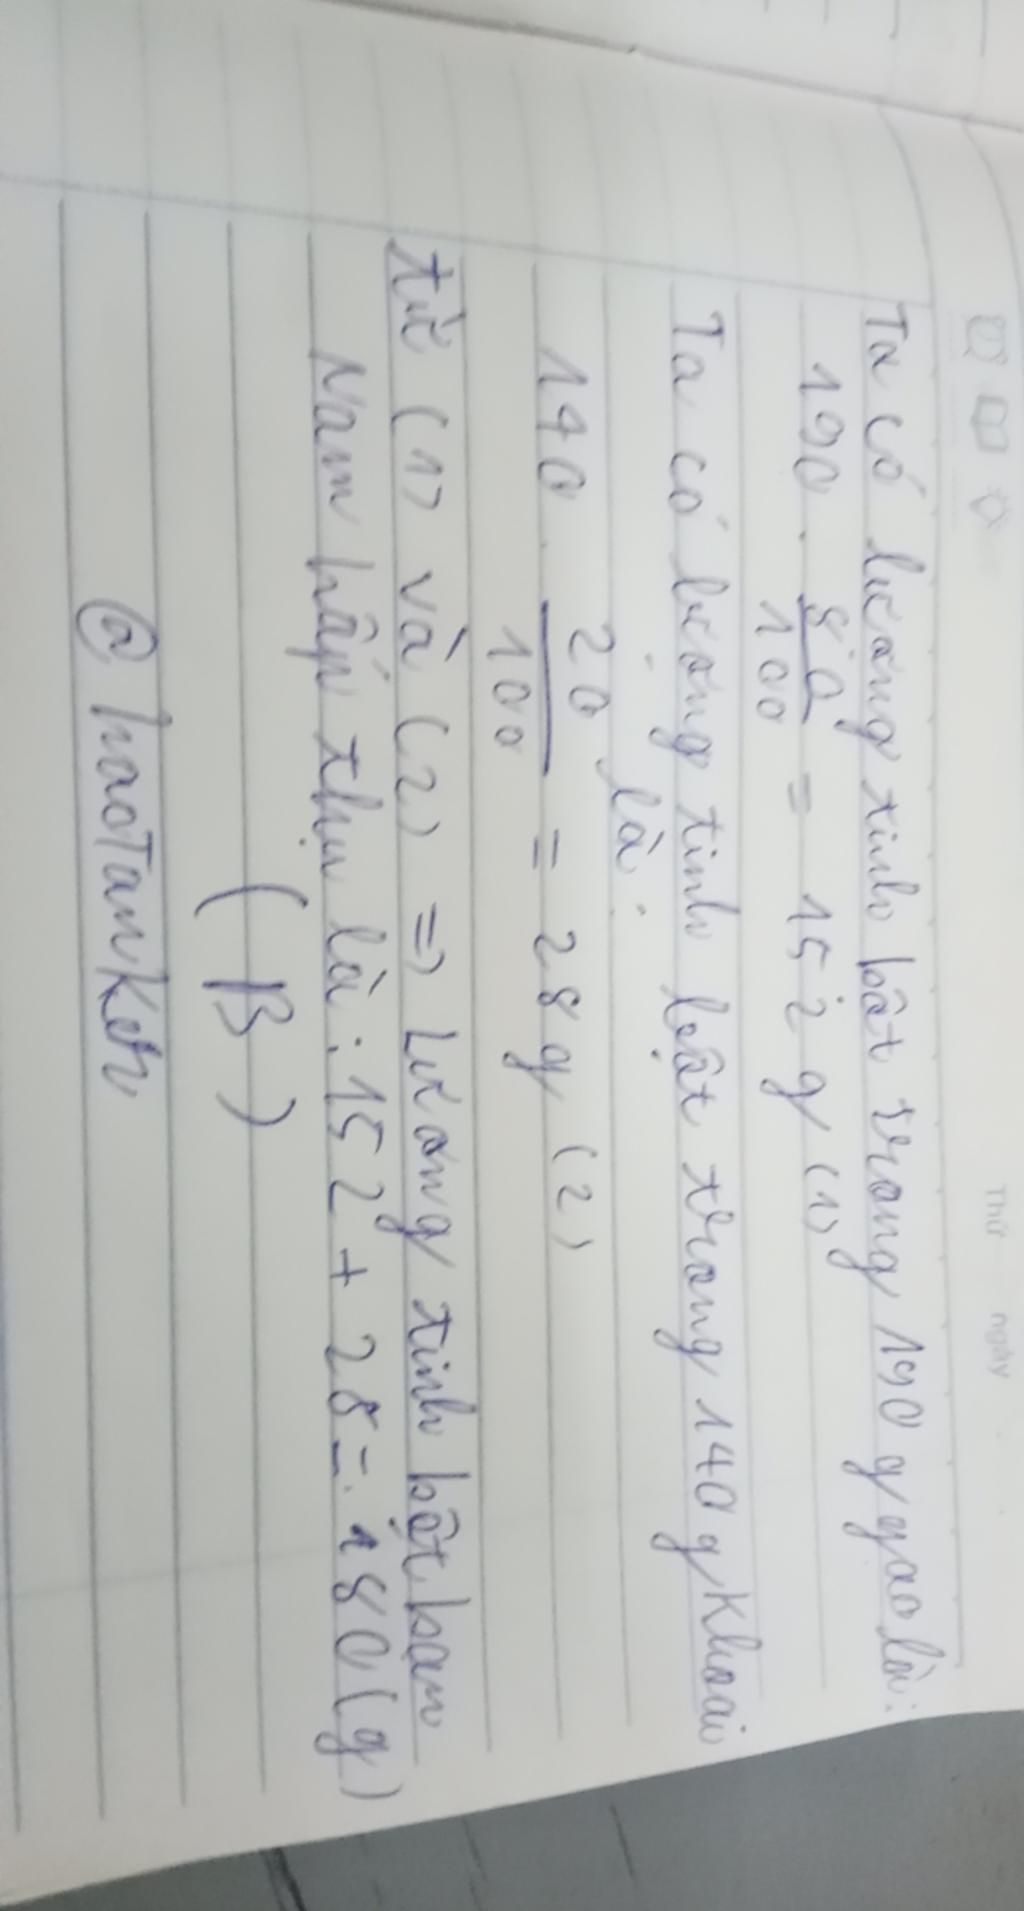 Thứ ngày
Ta có lượng tinh bột trong 190 g gạo là:
190 . 80/100 = 152 g (1)
Ta có lượng tinh bột trong 140 g khoai
là:
140 . 20/100 = 28 g (2)
từ (1) và (2) => Lượng tinh bột bạn
Nam hấp thụ là : 152 + 28 = 180 (g)
( B )
@ haoTanKeh